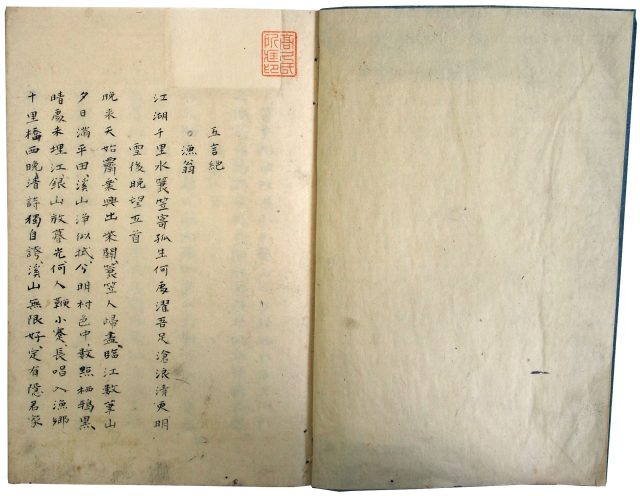 五言絶
。漁翁
江湖千里水簑笠寄孤生何處濯吾足滄浪清更明
雪後晚望五首
晚来天始霽乗興出柴關簑笠人歸盡臨江數筆山
夕日満平田溪山浄似拭分明村色中數點栖鴉黒
晴處未埋江銀山放暮光何人鞭小蹇長唱入漁郷
千里橋西晚清詩獨自誇溪山無限好定有隱君家